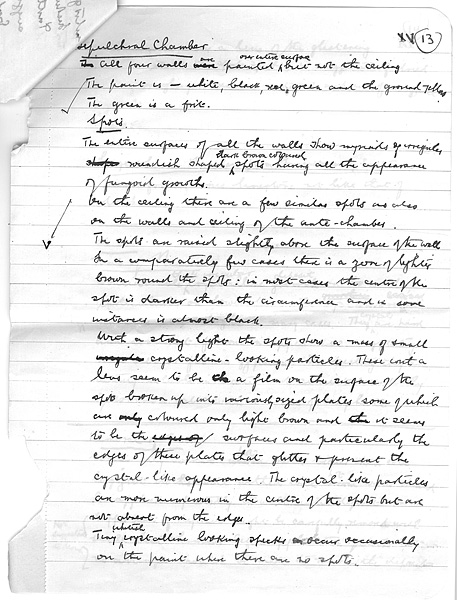 XV 13
Sepulchral Chamber
over entire surface
In all four walls are painted, but not the ceiling
The paint is — white, black, red, green and the ground yellow
The green is a frit.
Spots.
The entire surfaces of all the walls show myriads of irregular
dark brown coloured
shape roundish shaped spots having all the appearance
of fungoid growths.
On the ceiling there are a few similar spots as also
on the walls and ceiling of the ante-chamber.
The spots are raised slightly above the surface of the wall
In a comparatively few cases there is a zone of lighter
brown round the spots: in most cases the centre of the
spot is darker than the circumference and in some
instances is almost black.
With a strong light the spots show a mass of small
crystalline-looking particles. These with a
lens seem to be a film on the surface of the
spot broken up into variously sized plates some of which
are only coloured only light brown and the it seems
to be the edges of surfaces and particularly the
edges of these plates that glitter & present the
crystal-like appearance. The crystal-like particles
are more numerous in the centre of the spots but are
not absent from the edges.
whitish
Tiny crystalline looking specks occur occasionally
on the paint where there are no spots.